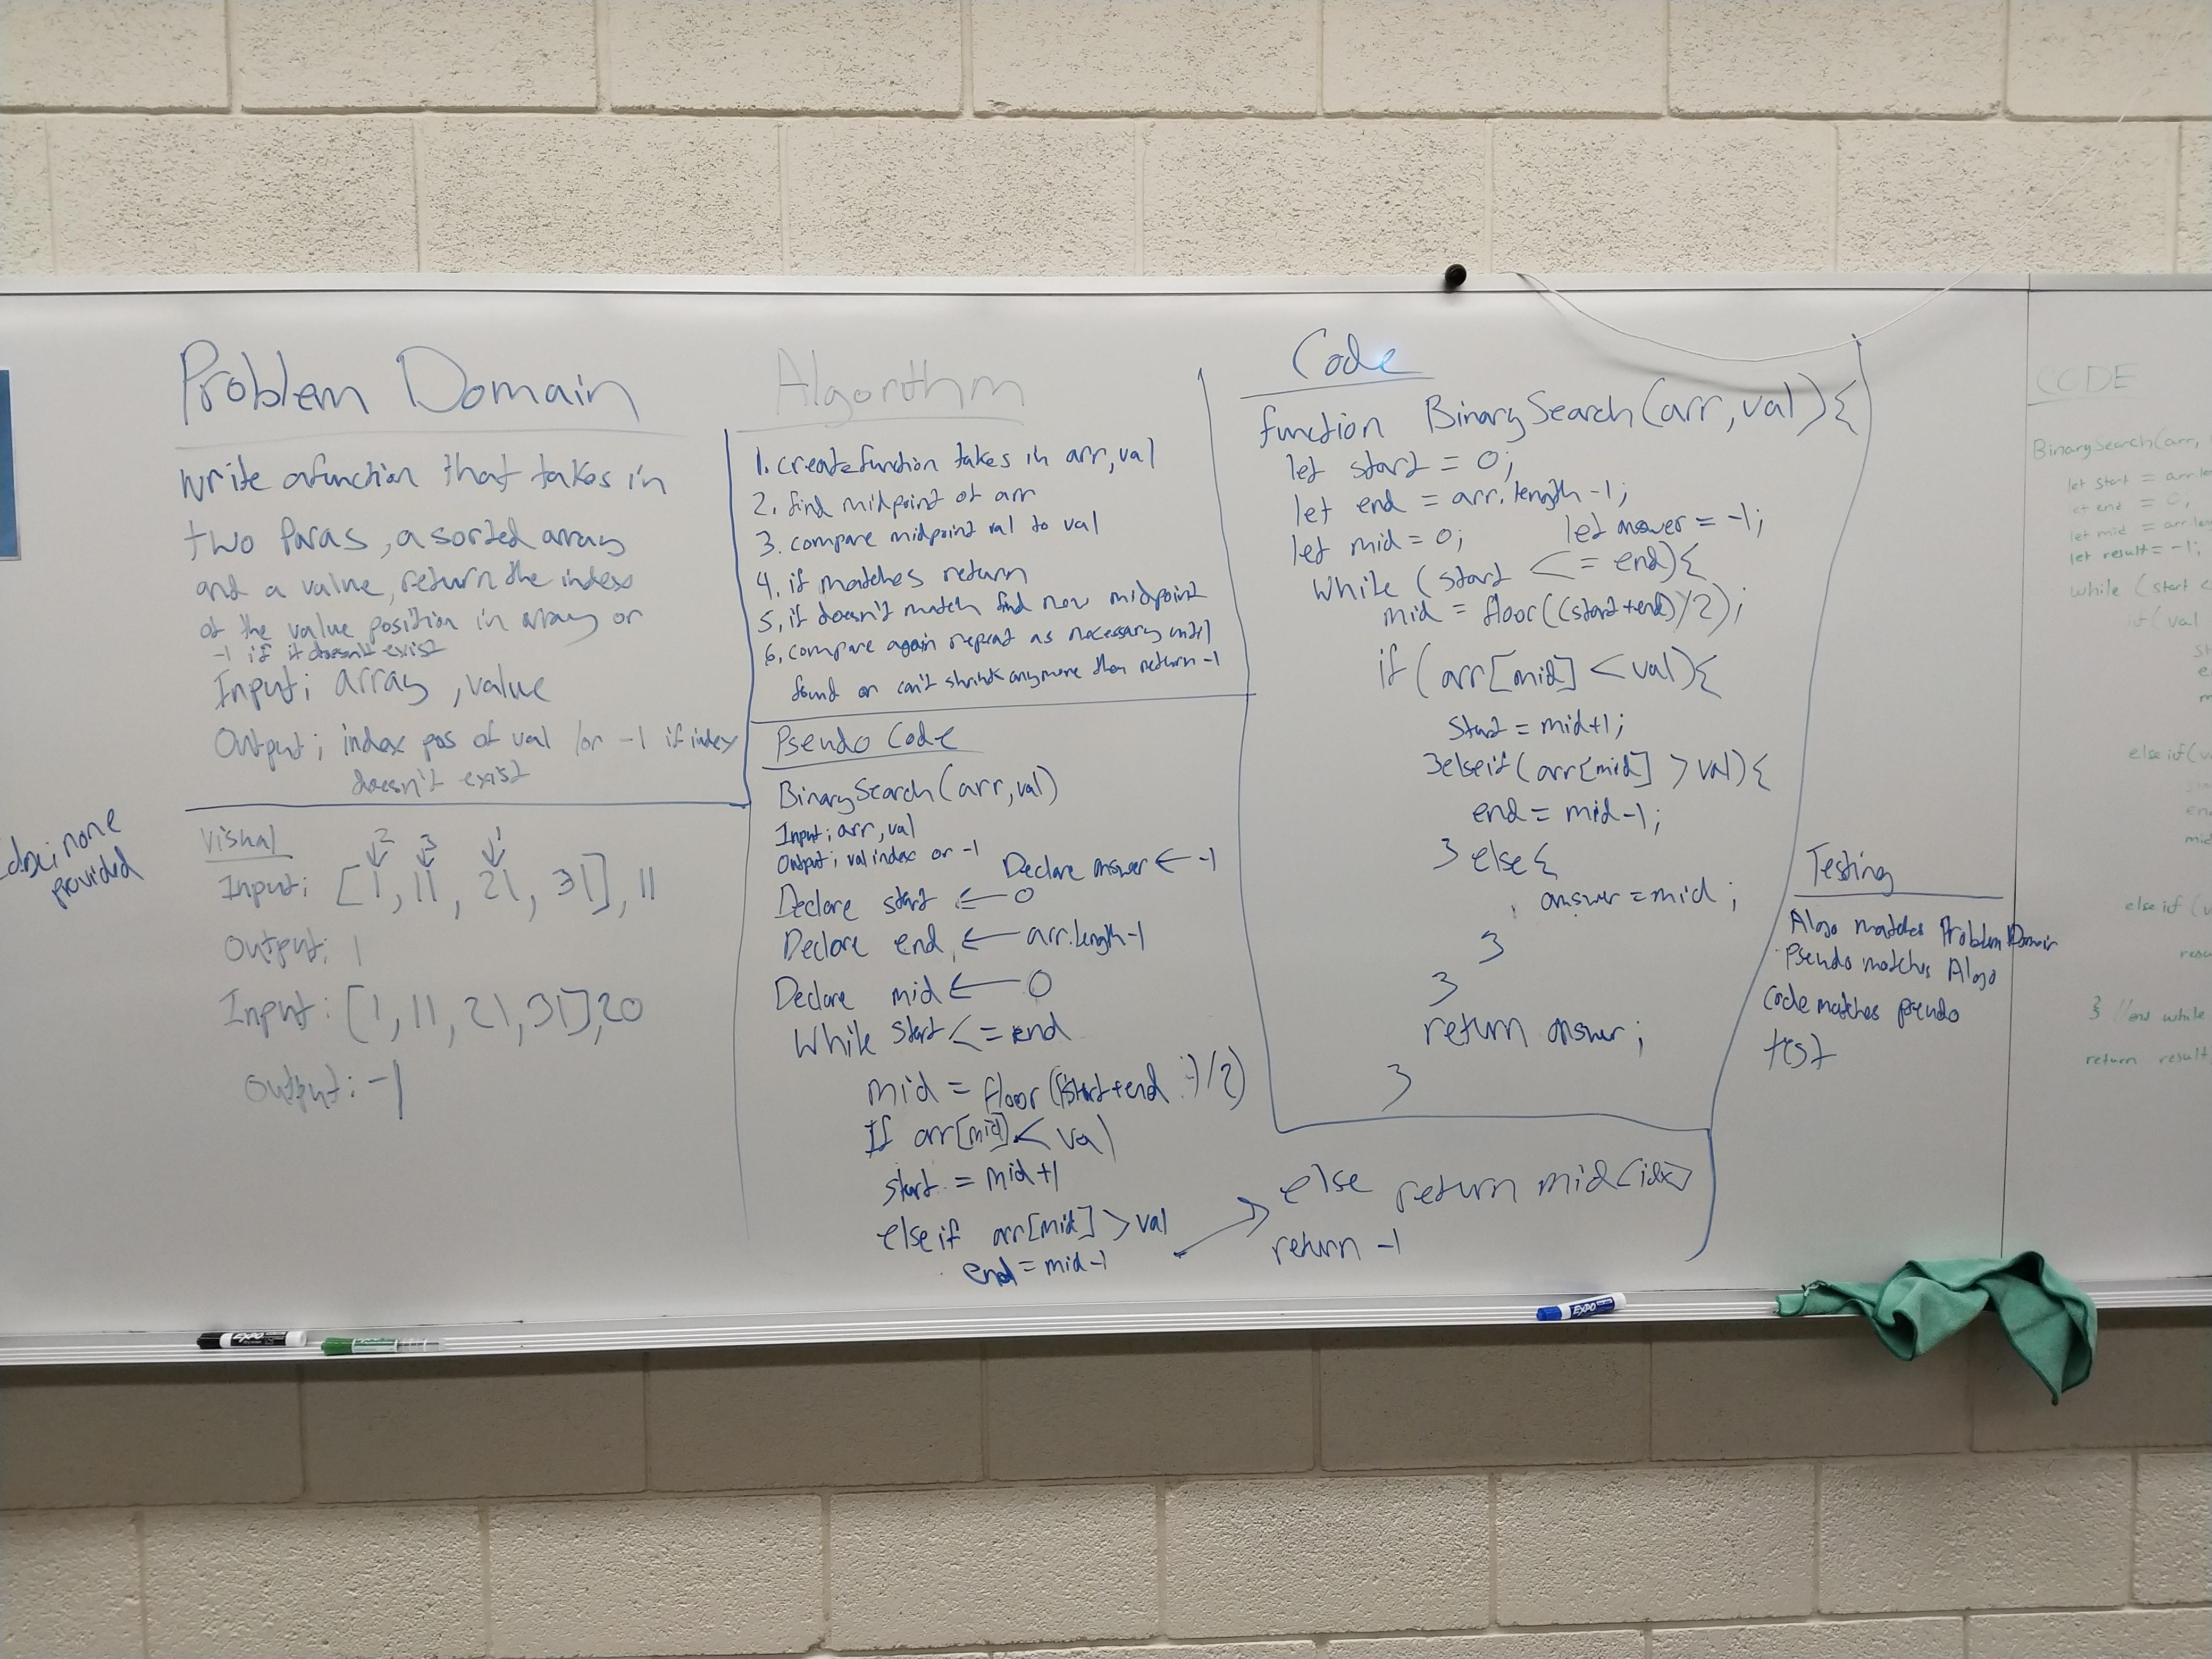 Problem Domain
write a function that takes in
two Paras, a sorted array
and a value, return the index
of the value position in array or
-1 if it doesn't exist
Input; array, value
Output; index pos of val /or -1 if index
doesn't exist
none
provided
Visual
2 3 1
Input: [1, 11, 21, 31], 11
Output: 1
Input: [1, 11, 21, 31], 20
Output: -1
Algorithm
1. create function takes in arr, val
2. find midpoint of arr
3. compare midpoint val to val
4. if matches return
5. if doesn't match find new midpoint
6. compare again repeat as necessary until
found or can't shrink anymore then return -1
Pseudo Code
BinarySearch(arr, val)
Input; arr, val
Output; val index or -1
Declare answer ← -1
Declare start ← 0
Declare end ← arr.length-1
Declare mid ← 0
While start <= end
mid = floor((start+end)/2)
If arr[mid] < val
start = mid+1
else if arr[mid] > val
end = mid-1
else return mid(idx)
return -1
Code
function BinarySearch(arr, val){
let start = 0;
let end = arr.length-1;
let mid = 0; let answer = -1;
While (start <= end){
mid = floor((start+end)/2);
if (arr[mid] < val){
start = mid+1;
}elseif(arr[mid] > val){
end = mid-1;
} else {
answer = mid;
}
}
return answer;
}
Testing
Algo matches Problem Domain
Pseudo matches Algo
Code matches pseudo
test
CODE
BinarySearch(arr,
let start = arr.le
let end = 0;
let mid = arr.len
let result = -1;
while (start
if (val
st
e
m
else if (v
end
mid
else if (v
resu
} //end while
return result